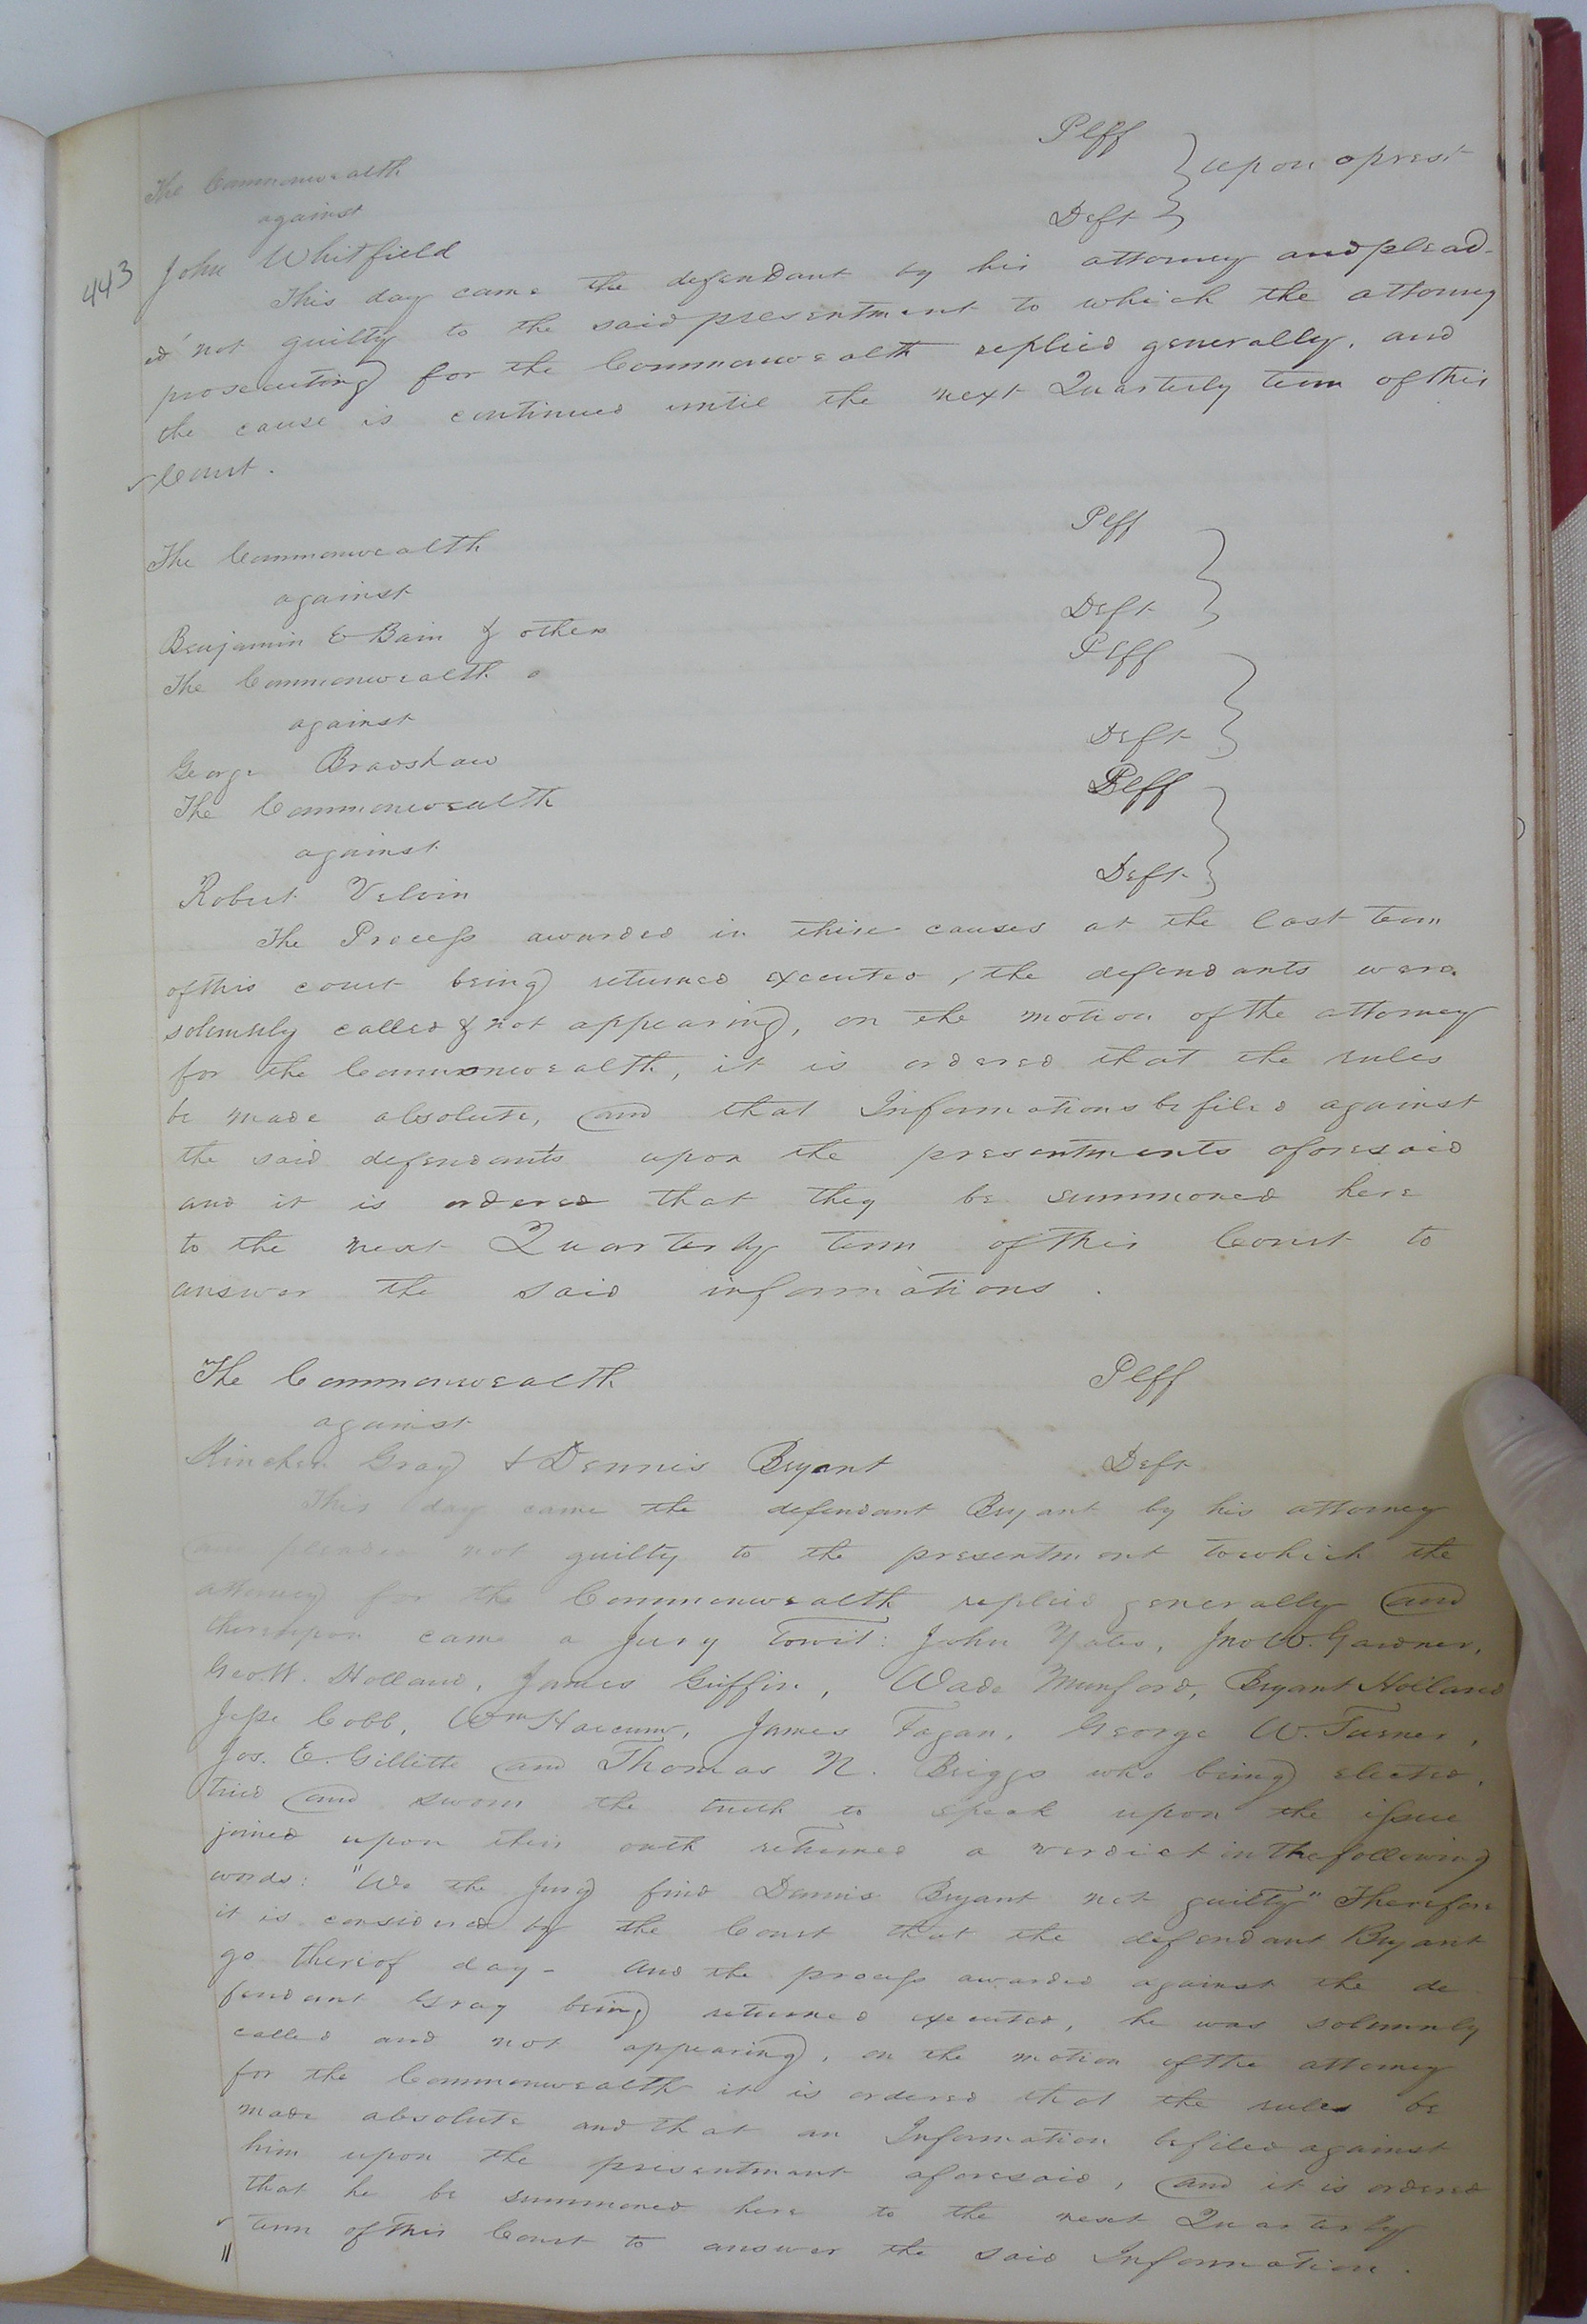 The Commonwealth Plff
against } upon a prest
443 John Whitfield Deft
This day came the defendant by his attorney and plead-
ed not guilty to the said presentment to which the attorney
prosecuting for the Commonwealth replied generally, and
the cause is continued until the next Quarterly term of this
Court.
The Commonwealth Plff
against }
Benjamin E Bain & others Deft
The Commonwealth Plff
against }
George Bradshaw Deft
The Commonwealth Plff
against }
Robert Velvin Deft
The Process awarded in these causes at the last term
of this court being returned executed, the defendants were
solemnly called & not appearing, on the motion of the attorney
for the Commonwealth, it is ordered that the rules
be made absolute, and that Informations be filed against
the said defendants upon the presentments aforesaid
and it is ordered that they be summoned here
to the next Quarterly term of this Court to
answer the said informations.
The Commonwealth Plff
against
Kinchen Gray & Dennis Bryant Deft
This day came the defendant Bryant by his attorney
and pleaded not guilty to the presentment to which the
attorney for the Commonwealth replied generally and
thereupon came a Jury Towit: John Yates, Jno W. Gardner,
Geo W. Holland, James Griffin, Wade Munford, Bryant Holland
Jesse Cobb, Wm Harcum, James Fagan, George W. Turner,
Jos. E. Gillette and Thomas N. Briggs who being elected,
tried and sworn the truth to speak upon the issue
joined upon their oath returned a verdict in the following
words: "We the Jury find Dennis Bryant not guilty" Therefore
it is considered by the Court that the defendant Bryant
go thereof day - And the process awarded against the de
fendant Gray being returned executed, he was solemnly
called and not appearing, on the motion of the attorney
for the Commonwealth it is ordered that the rules be
made absolute and that an Information be filed against
him upon the presentment aforesaid, and it is ordered
that he be summoned here to the next Quarterly
term of this Court to answer the said Information.